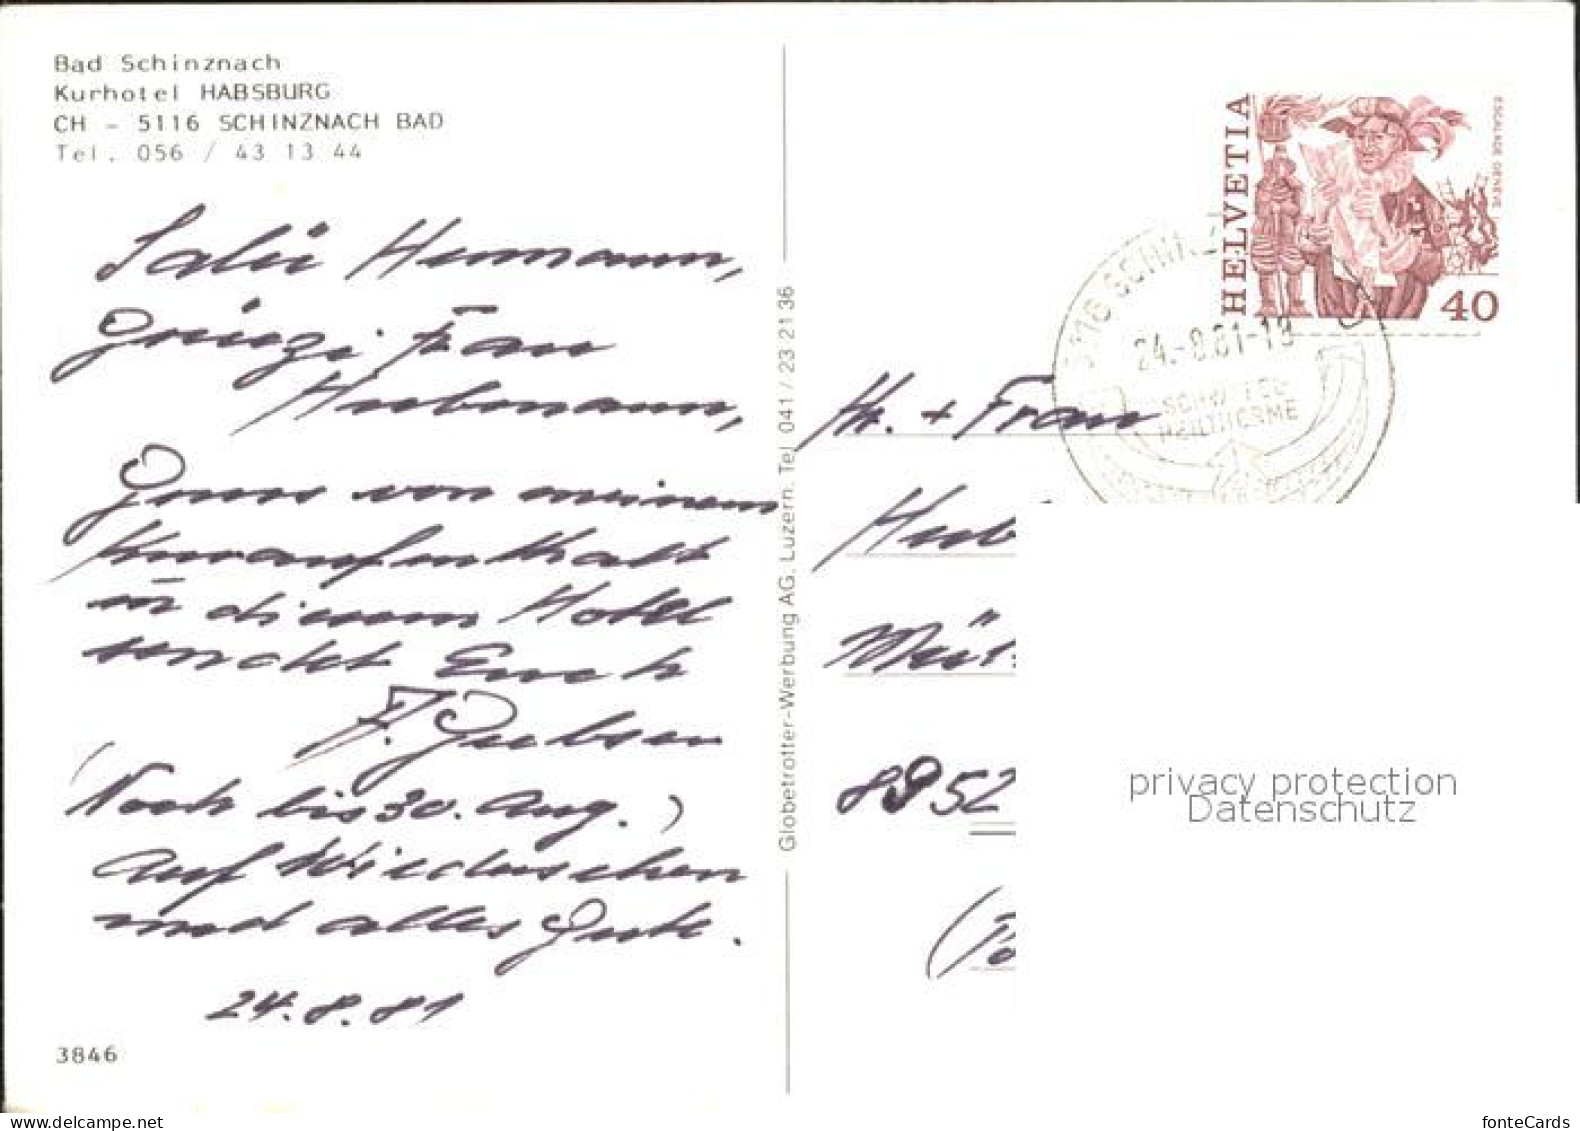 Bad Schinznach
Kurhotel HABSBURG
CH - 5116 SCHINZNACH BAD
Tel. 056 / 43 13 44
Salü Hermann,
Grüezi Frau
Hubmann,
Gruss von meinem
Kuraufenthalt
in diesem Hotel
sendet Euch
(Noch bis 30. Aug.)
Auf Wiedersehen
und alles Gute.
24.8.81
3846
Globetrotter-Werbung AG, Luzern. Tel 041 / 23 21 36
HELVETIA
ESCALADE GENÈVE
40
5116 SCHINZ
24.-8.81-19
SCHWEFEL
HEILTHERME
Hr. + Frau
Hub
8952
privacy protection
Datenschutz
fonteCards